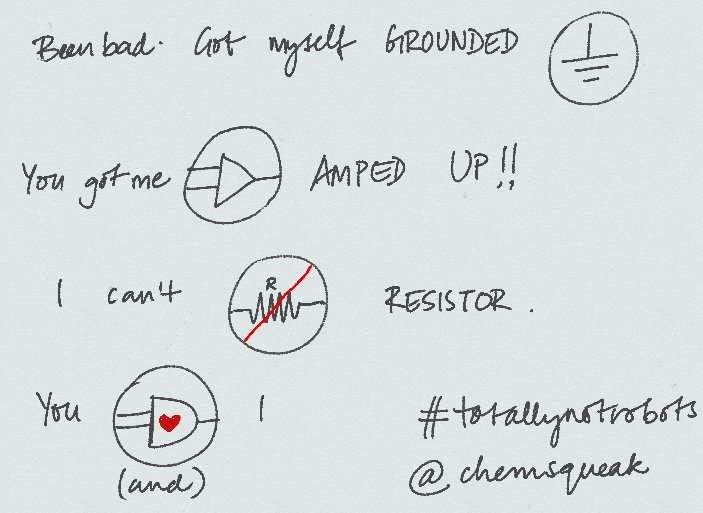 Been bad. Got myself GROUNDED
You got me AMPED UP!!
R
I can't RESISTOR.
You I
(and)
#totallynotrobots
@chemsqueak